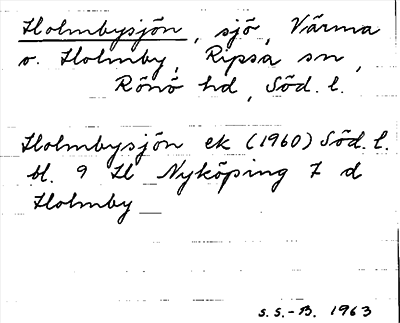 Holmbysjön, sjö, Värma
o. Holmby, Ripsa sn,
Rönö hd, Söd. l.
Holmbysjön ek (1960) Söd. l.
bl. 9 H Nyköping 7 d
Holmby
S.S.-B. 1963